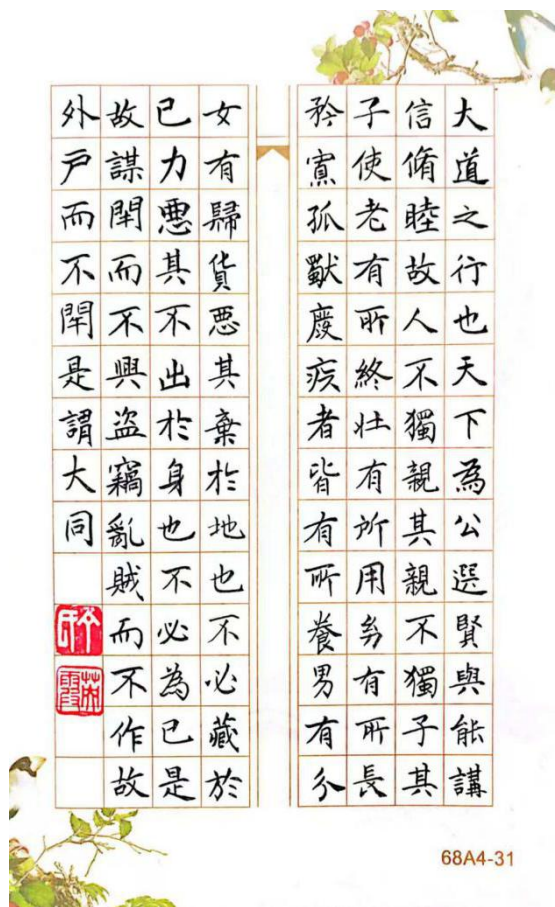 大道之行也天下為公選賢與能講
信脩睦故人不獨親其親不獨子其
子使老有所終壯有所用幼有所長
矜寡孤獨廢疾者皆有所養男有分
女有歸貨惡其棄於地也不必藏於
己力惡其不出於身也不必為己是
故謀閉而不興盜竊亂賊而不作故
外戶而不閉是謂大同
68A4-31